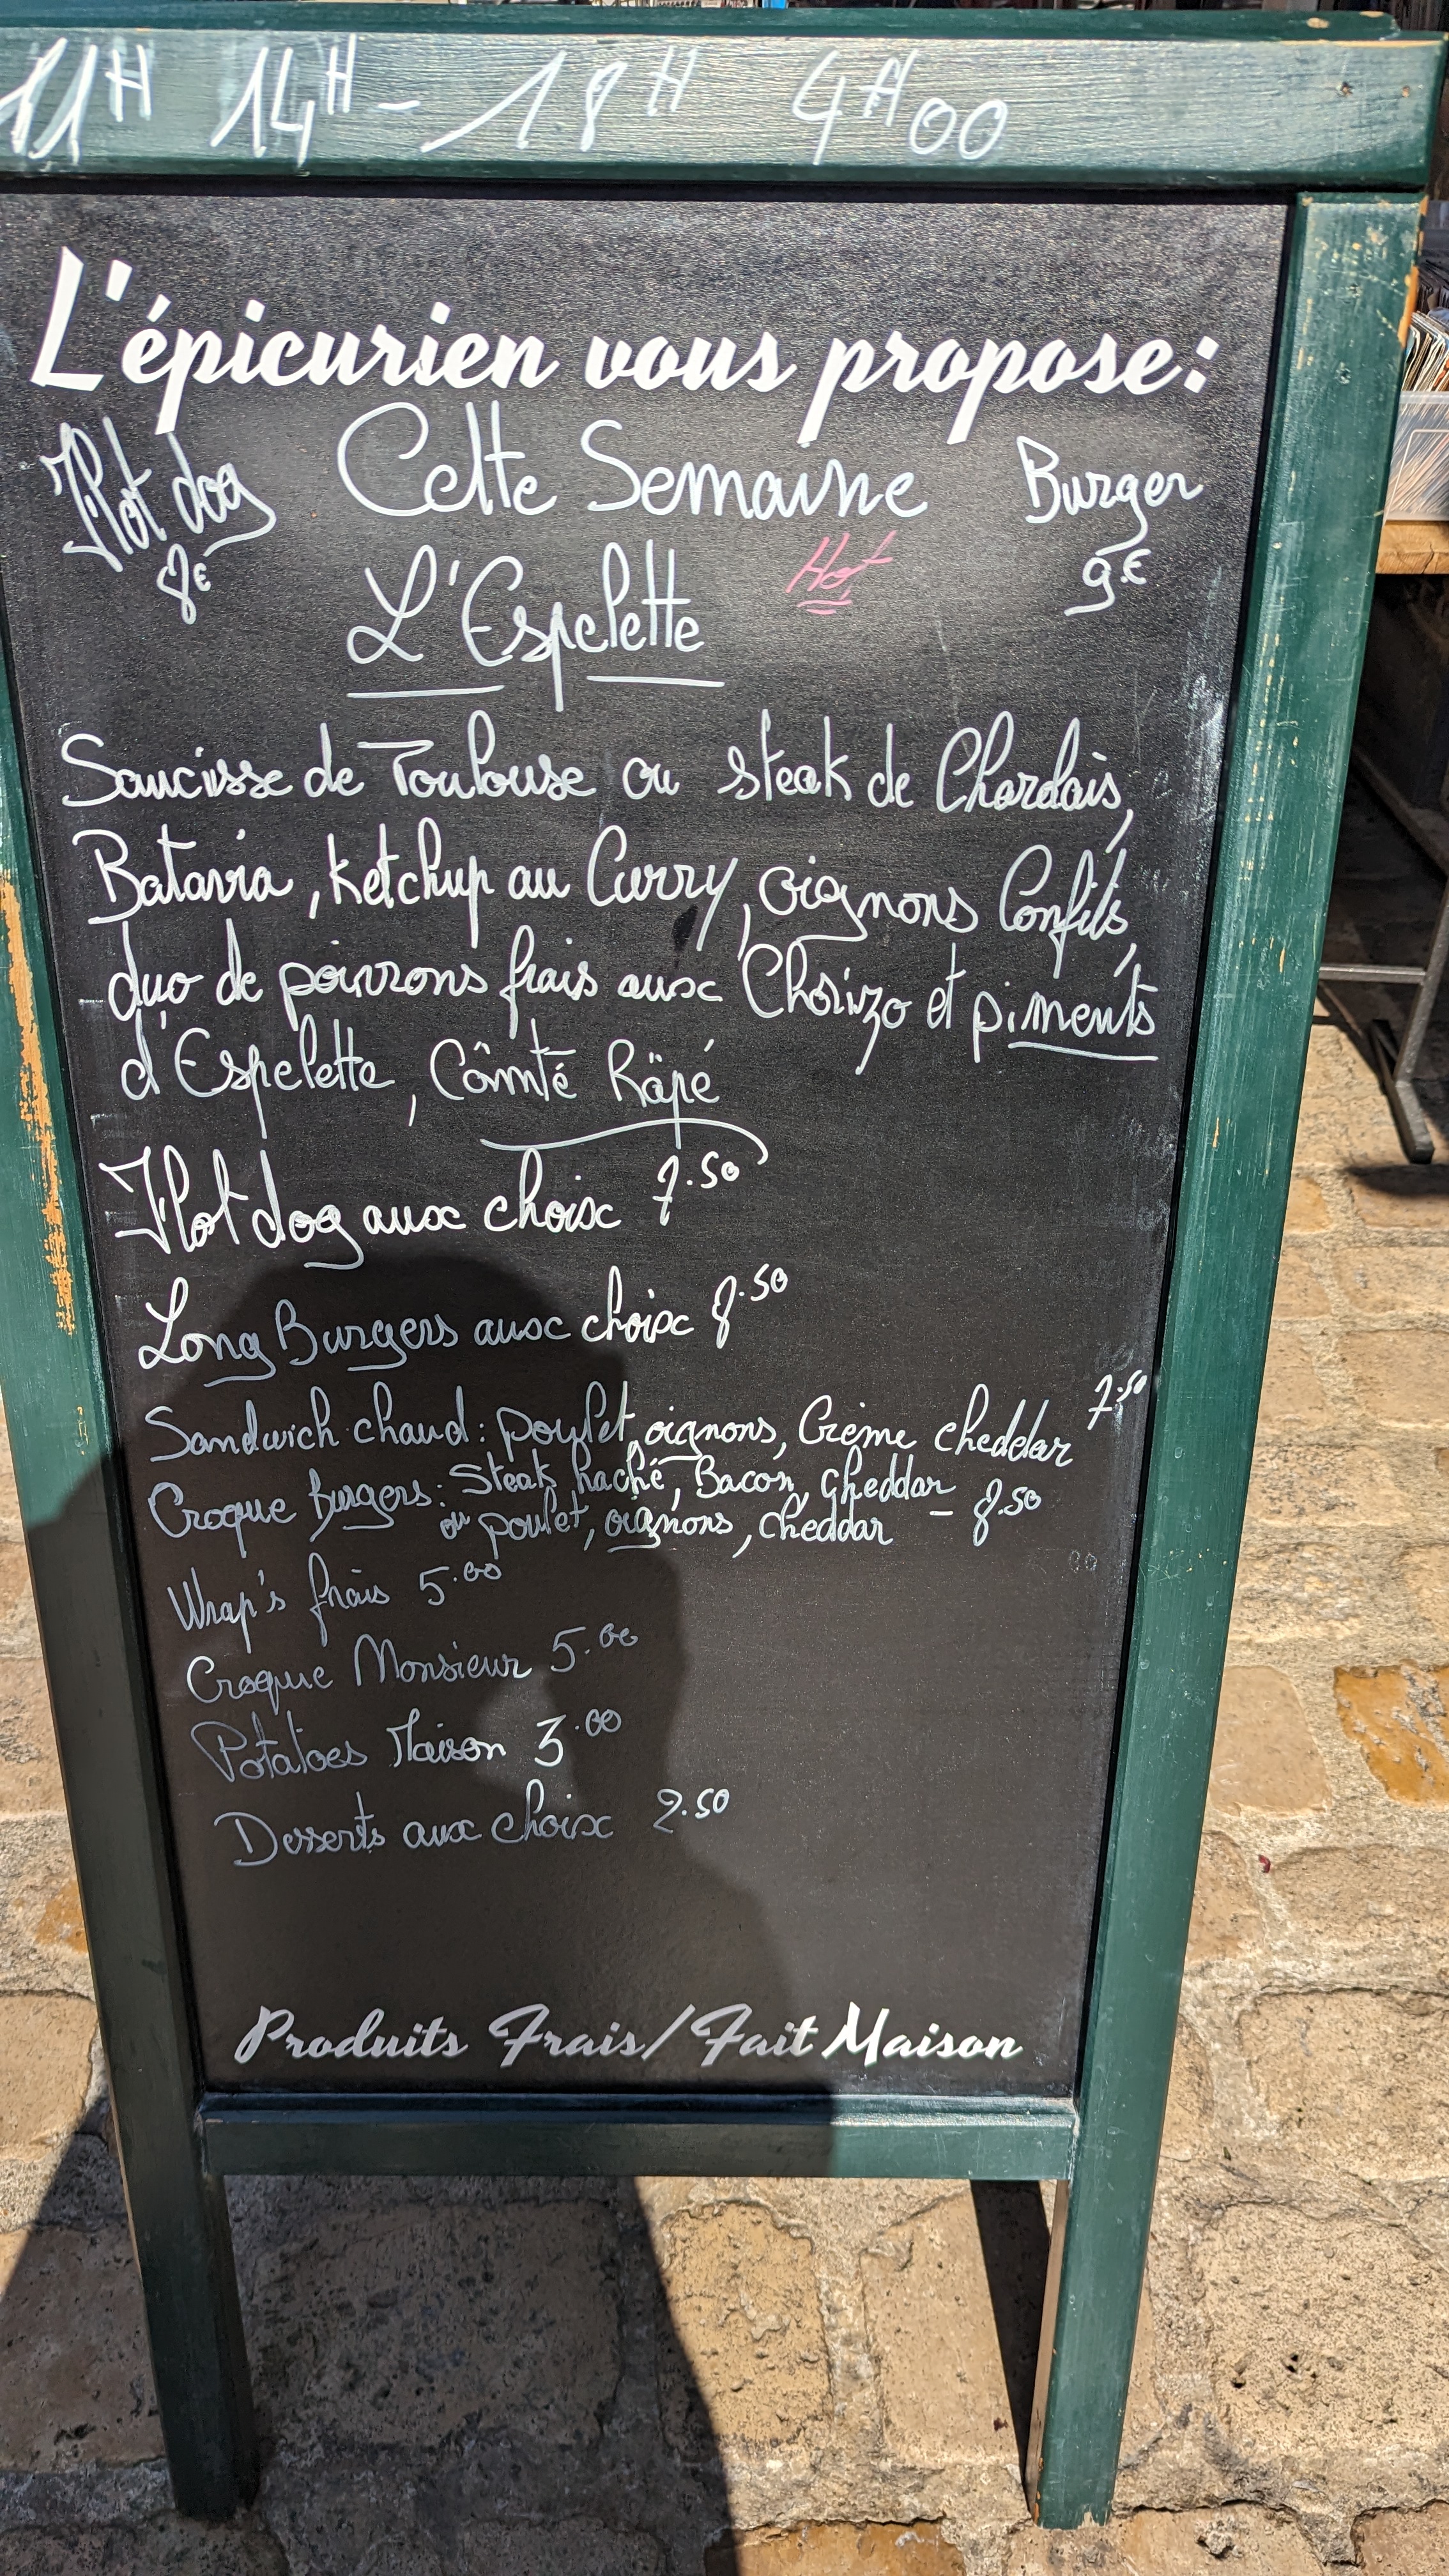 11H 14H - 18H 4H00
L'épicurien vous propose:
Hot dog Cette Semaine Burger
8€ L'Espelette Hot 9.€
Saucisse de Toulouse ou steak de Charolais,
Batavia, ketchup au Curry, oignons Confits,
duo de poivrons frais aux Chorizo et piments
d'Espelette, Cômté Râpé
Hot dog aux choix 7.50
Long Burgers aux choix 8.50
Sandwich chaud: poulet, oignons, Crème cheddar 7.50
Croque Burgers: Steak haché, Bacon, cheddar
ou poulet, oignons, cheddar - 8.50
Wrap's frais 5.00
Croque Monsieur 5.00
Potatoes Maison 3.00
Desserts aux choix 2.50
Produits Frais/Fait Maison